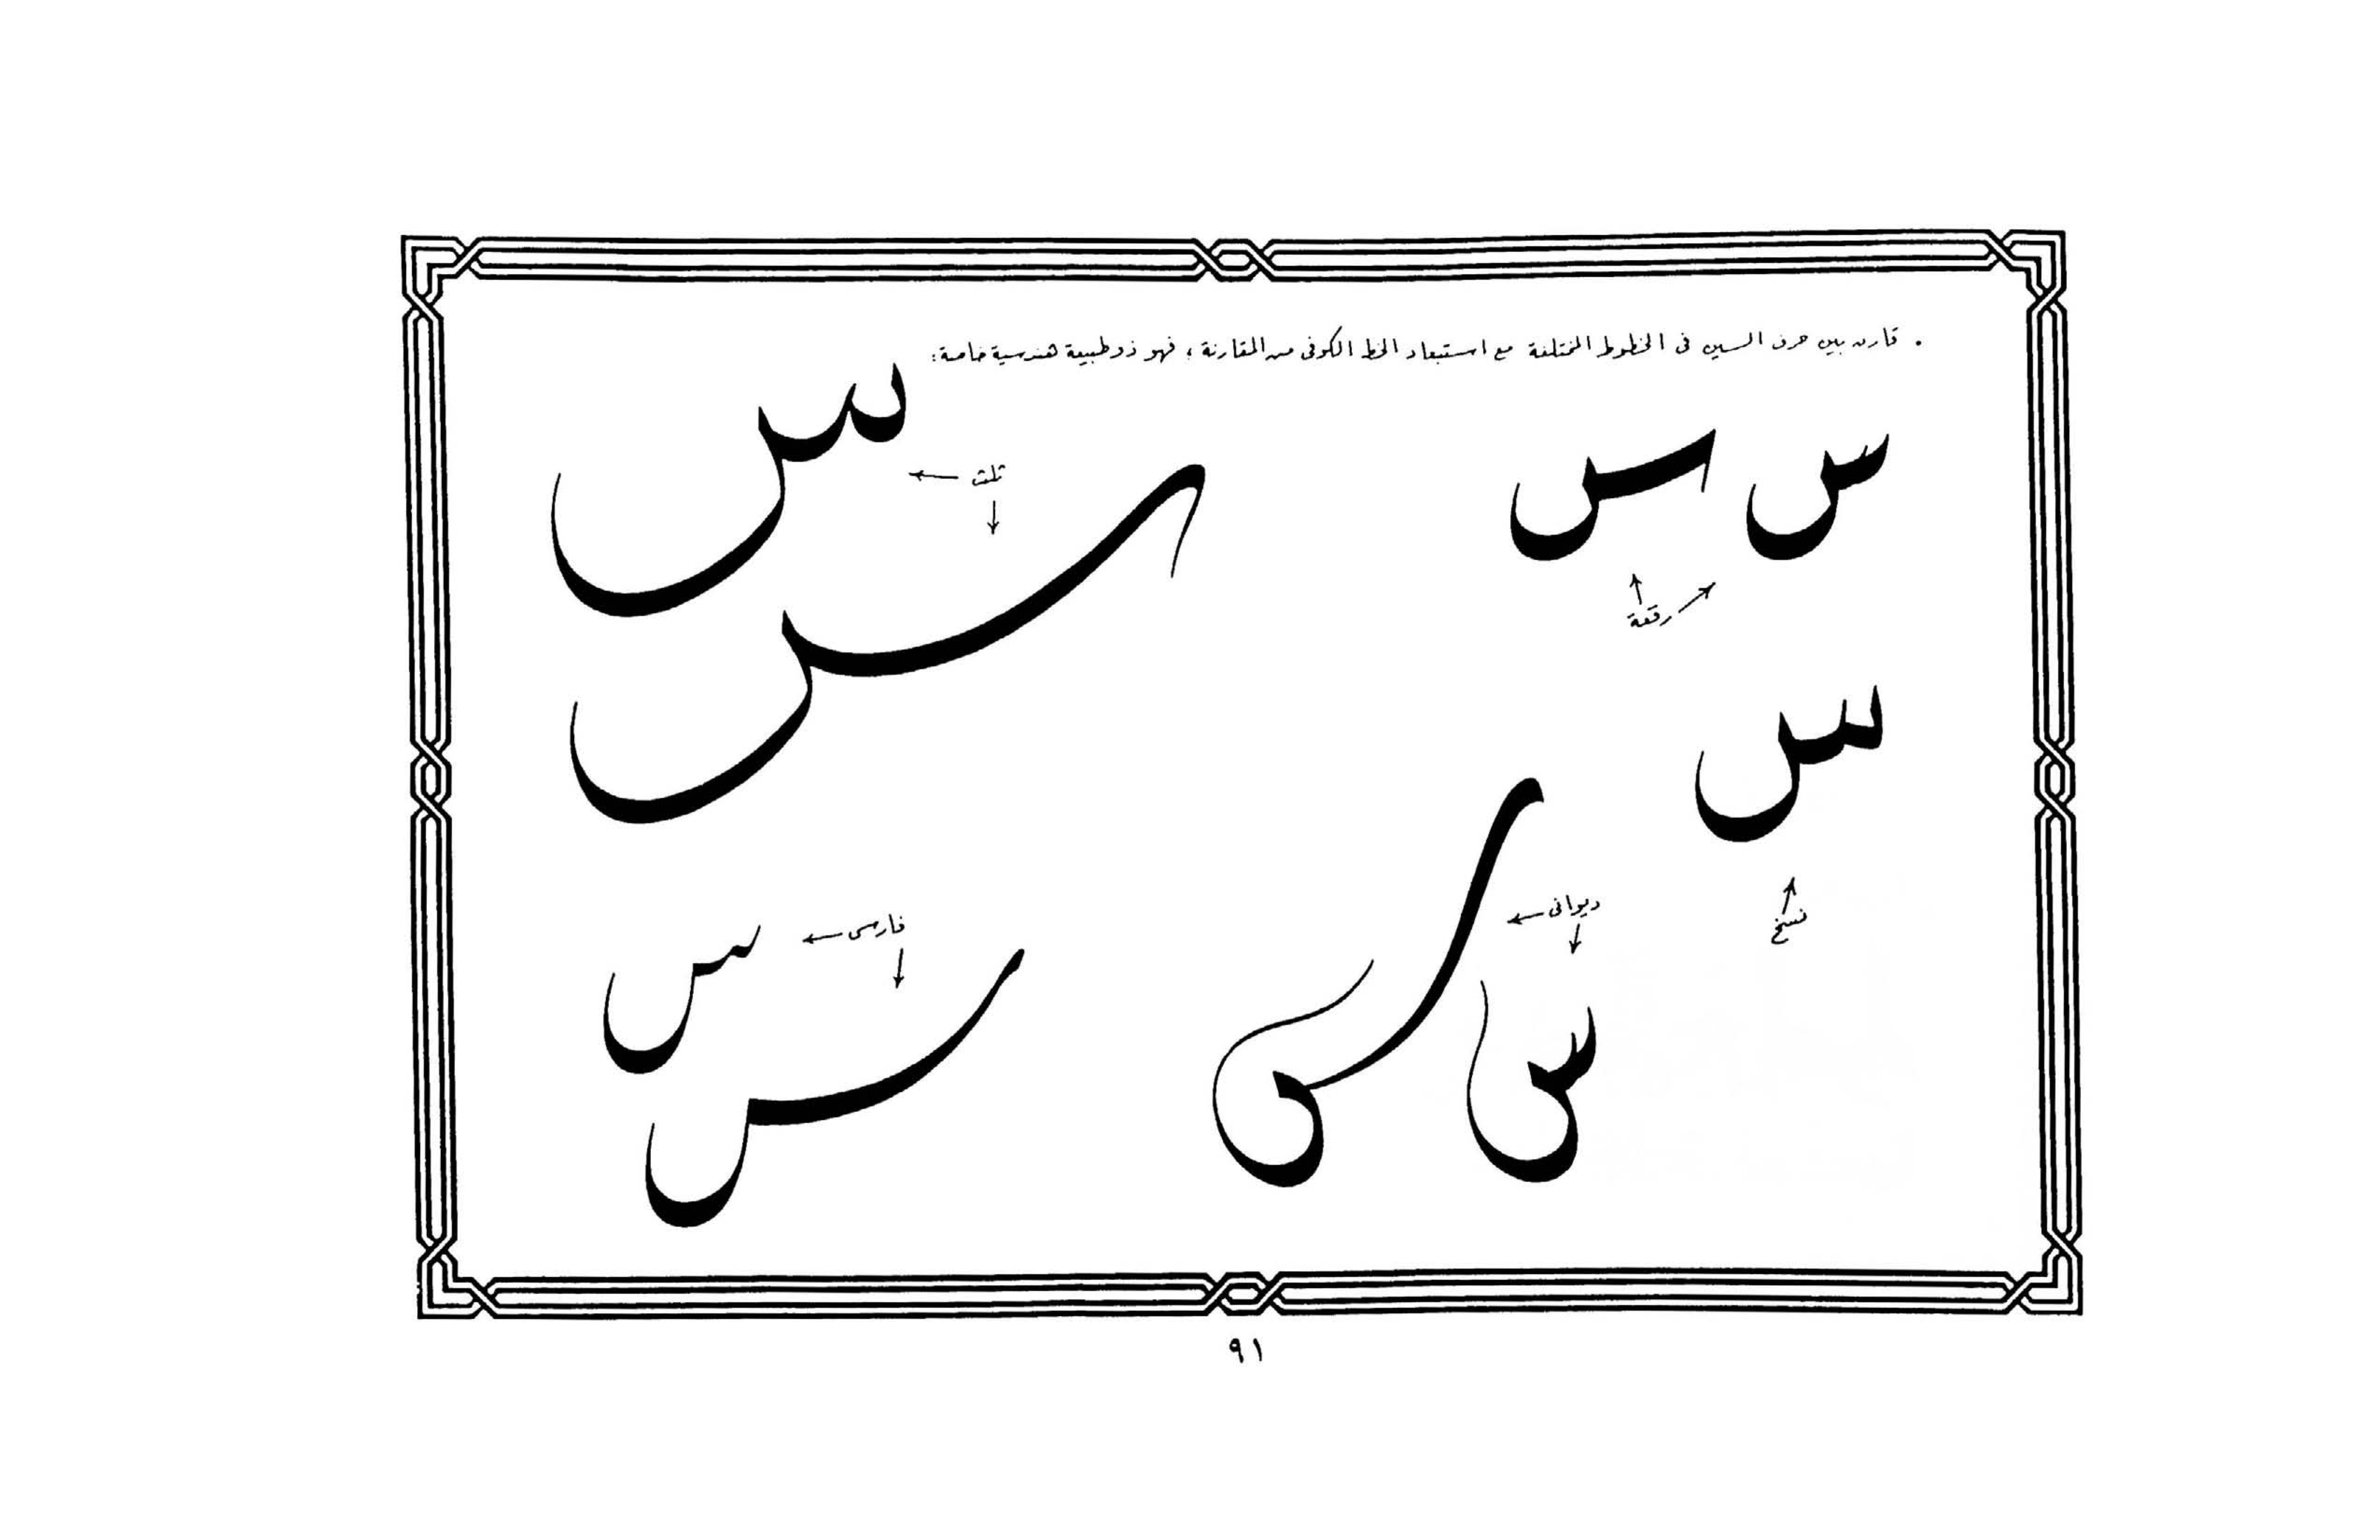 . قارن بين حرف السين فى الخطوط المختلفة مع استبعاد الخط الكوفى من المقارنة ، فهو ذو طبيعة هندسية خاصة :
س س
رقعة
س
ثلث
س
س
نسخ
ديوانى
س س
فارسى
س
س
٩١